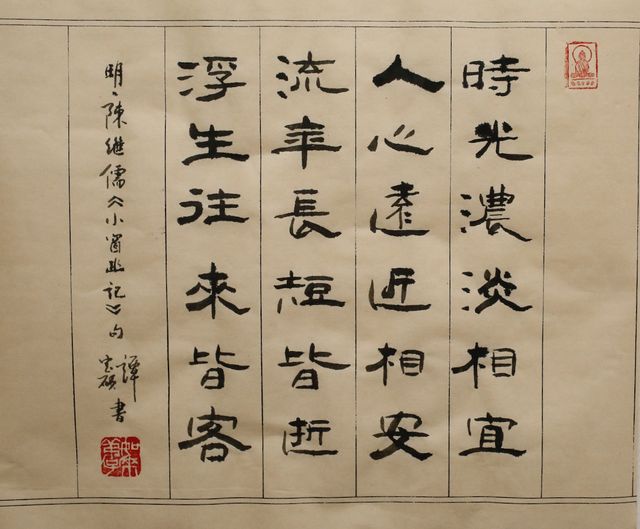 時光濃淡相宜
人心遠近相安
流年長短皆逝
浮生往來皆客
明、陳继儒《小窗幽記》句
譚 書
如來弟子